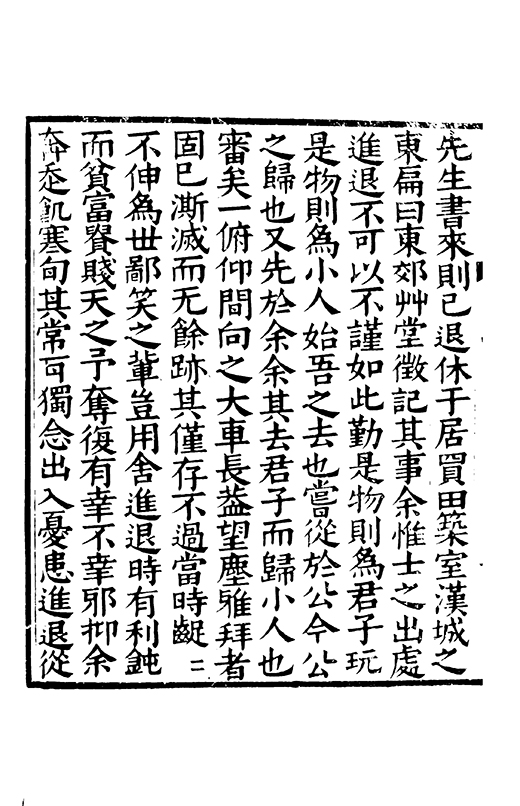 先生書來則已退休于居買田築室漢城之
東扁曰東郊艸堂徵記其事余惟士之出處
進退不可以不謹如此勤是物則爲君子玩
是物則爲小人始吾之去也嘗從於公今公
之歸也又先於余余其去君子而歸小人也
審矣一俯仰間向之大車長葢望塵雅拜者
固已澌滅而无餘跡其僅存不過當時齪〻
不伸爲世鄙笑之輩豈用舍進退時有利鈍
而貧富貴賤天之予奪復有幸不幸邪抑余
奔走飢寒旬其常可獨念出入憂患進退從